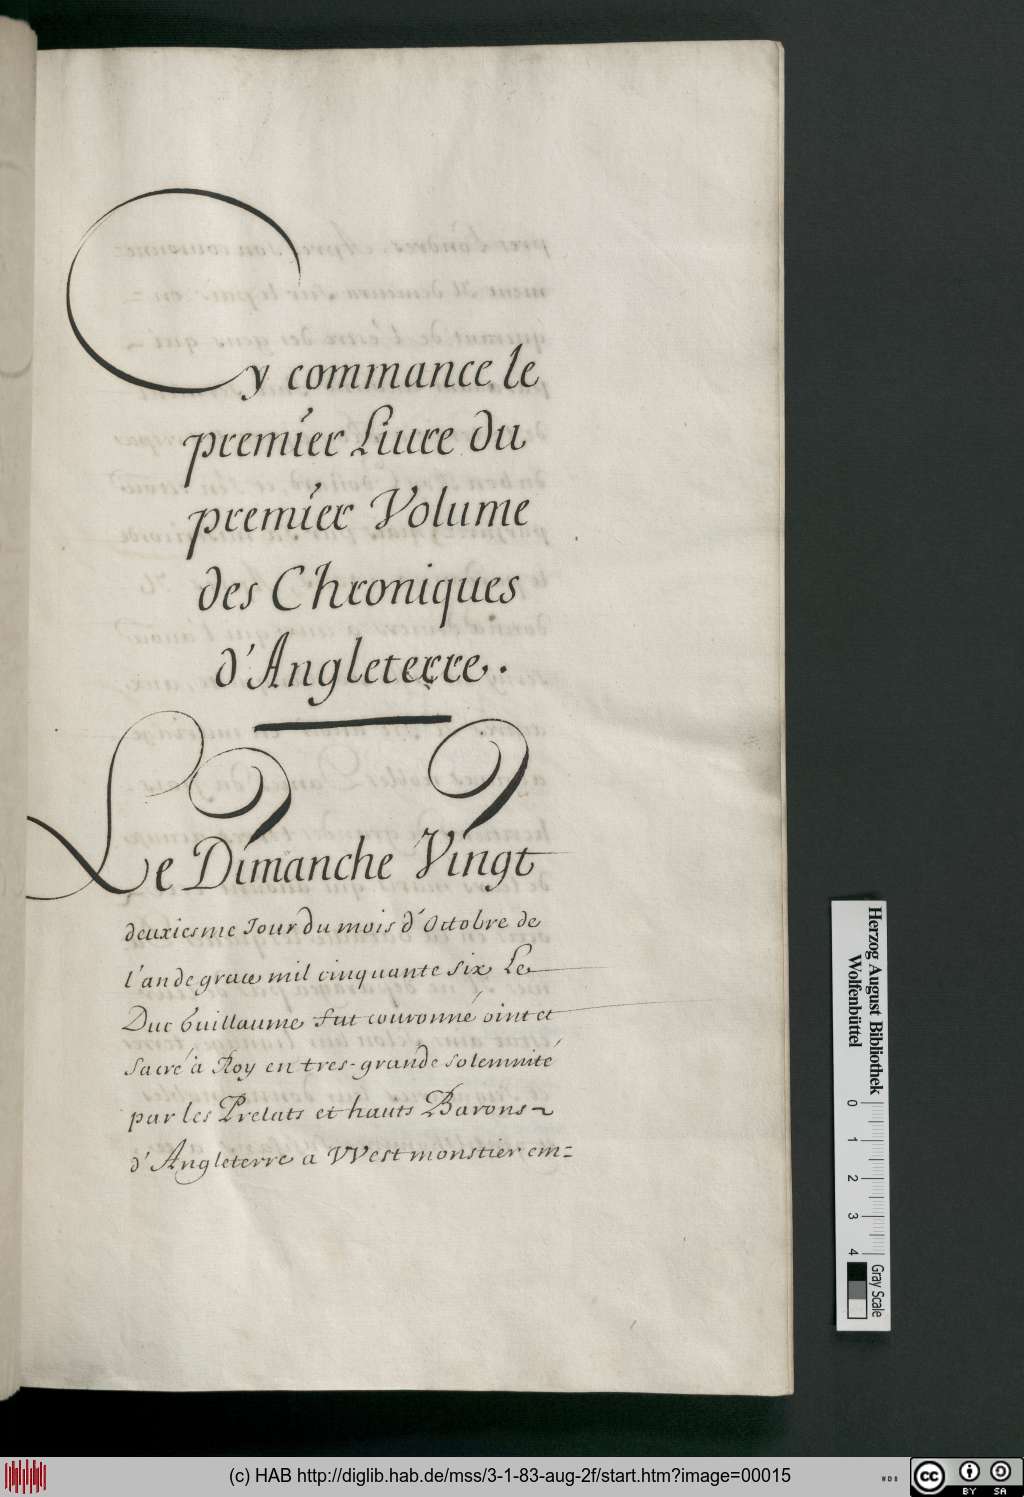 Cy commance le
premier Liure du
premier Volume
des Chroniques
d'Angleterre.
Le Dimanche Vingt
deuxiesme Jour du mois d'Octobre de
l'an de grace mil cinquante six Le
Duc Guillaume fut couronné oint et
sacré à Roy en tres-grande solemnité
par les Prelats et hauts Barons
d'Angleterre a VVestmonstier em=
Herzog August Bibliothek
Wolfenbüttel
0 1 2 3 4
Gray Scale
(c) HAB http://diglib.hab.de/mss/3-1-83-aug-2f/start.htm?image=00015
cc BY SA